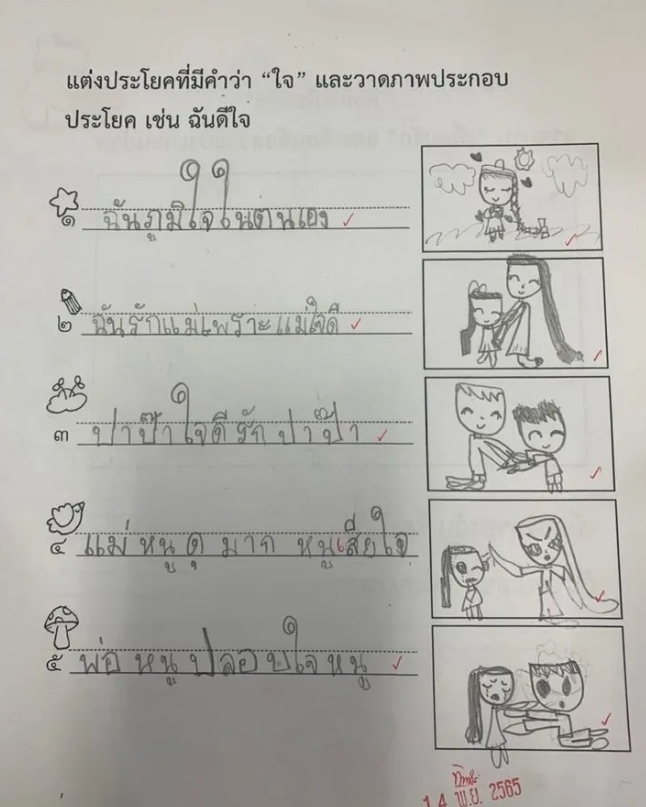 แต่งประโยคที่มีคำว่า “ใจ” และวาดภาพประกอบ
ประโยค เช่น ฉันดีใจ
๑ ฉันภูมิใจในตนเอง
๒ ฉันรักแม่เพราะแม่ใจดี
๓ ปาป๊าใจดี รัก ปาป๊า
๔ แม่ หนู ดุ มาก หนูเสียใจ
๕ พ่อ หนู ปลอบใจหนู
14 พ.ย. 2565